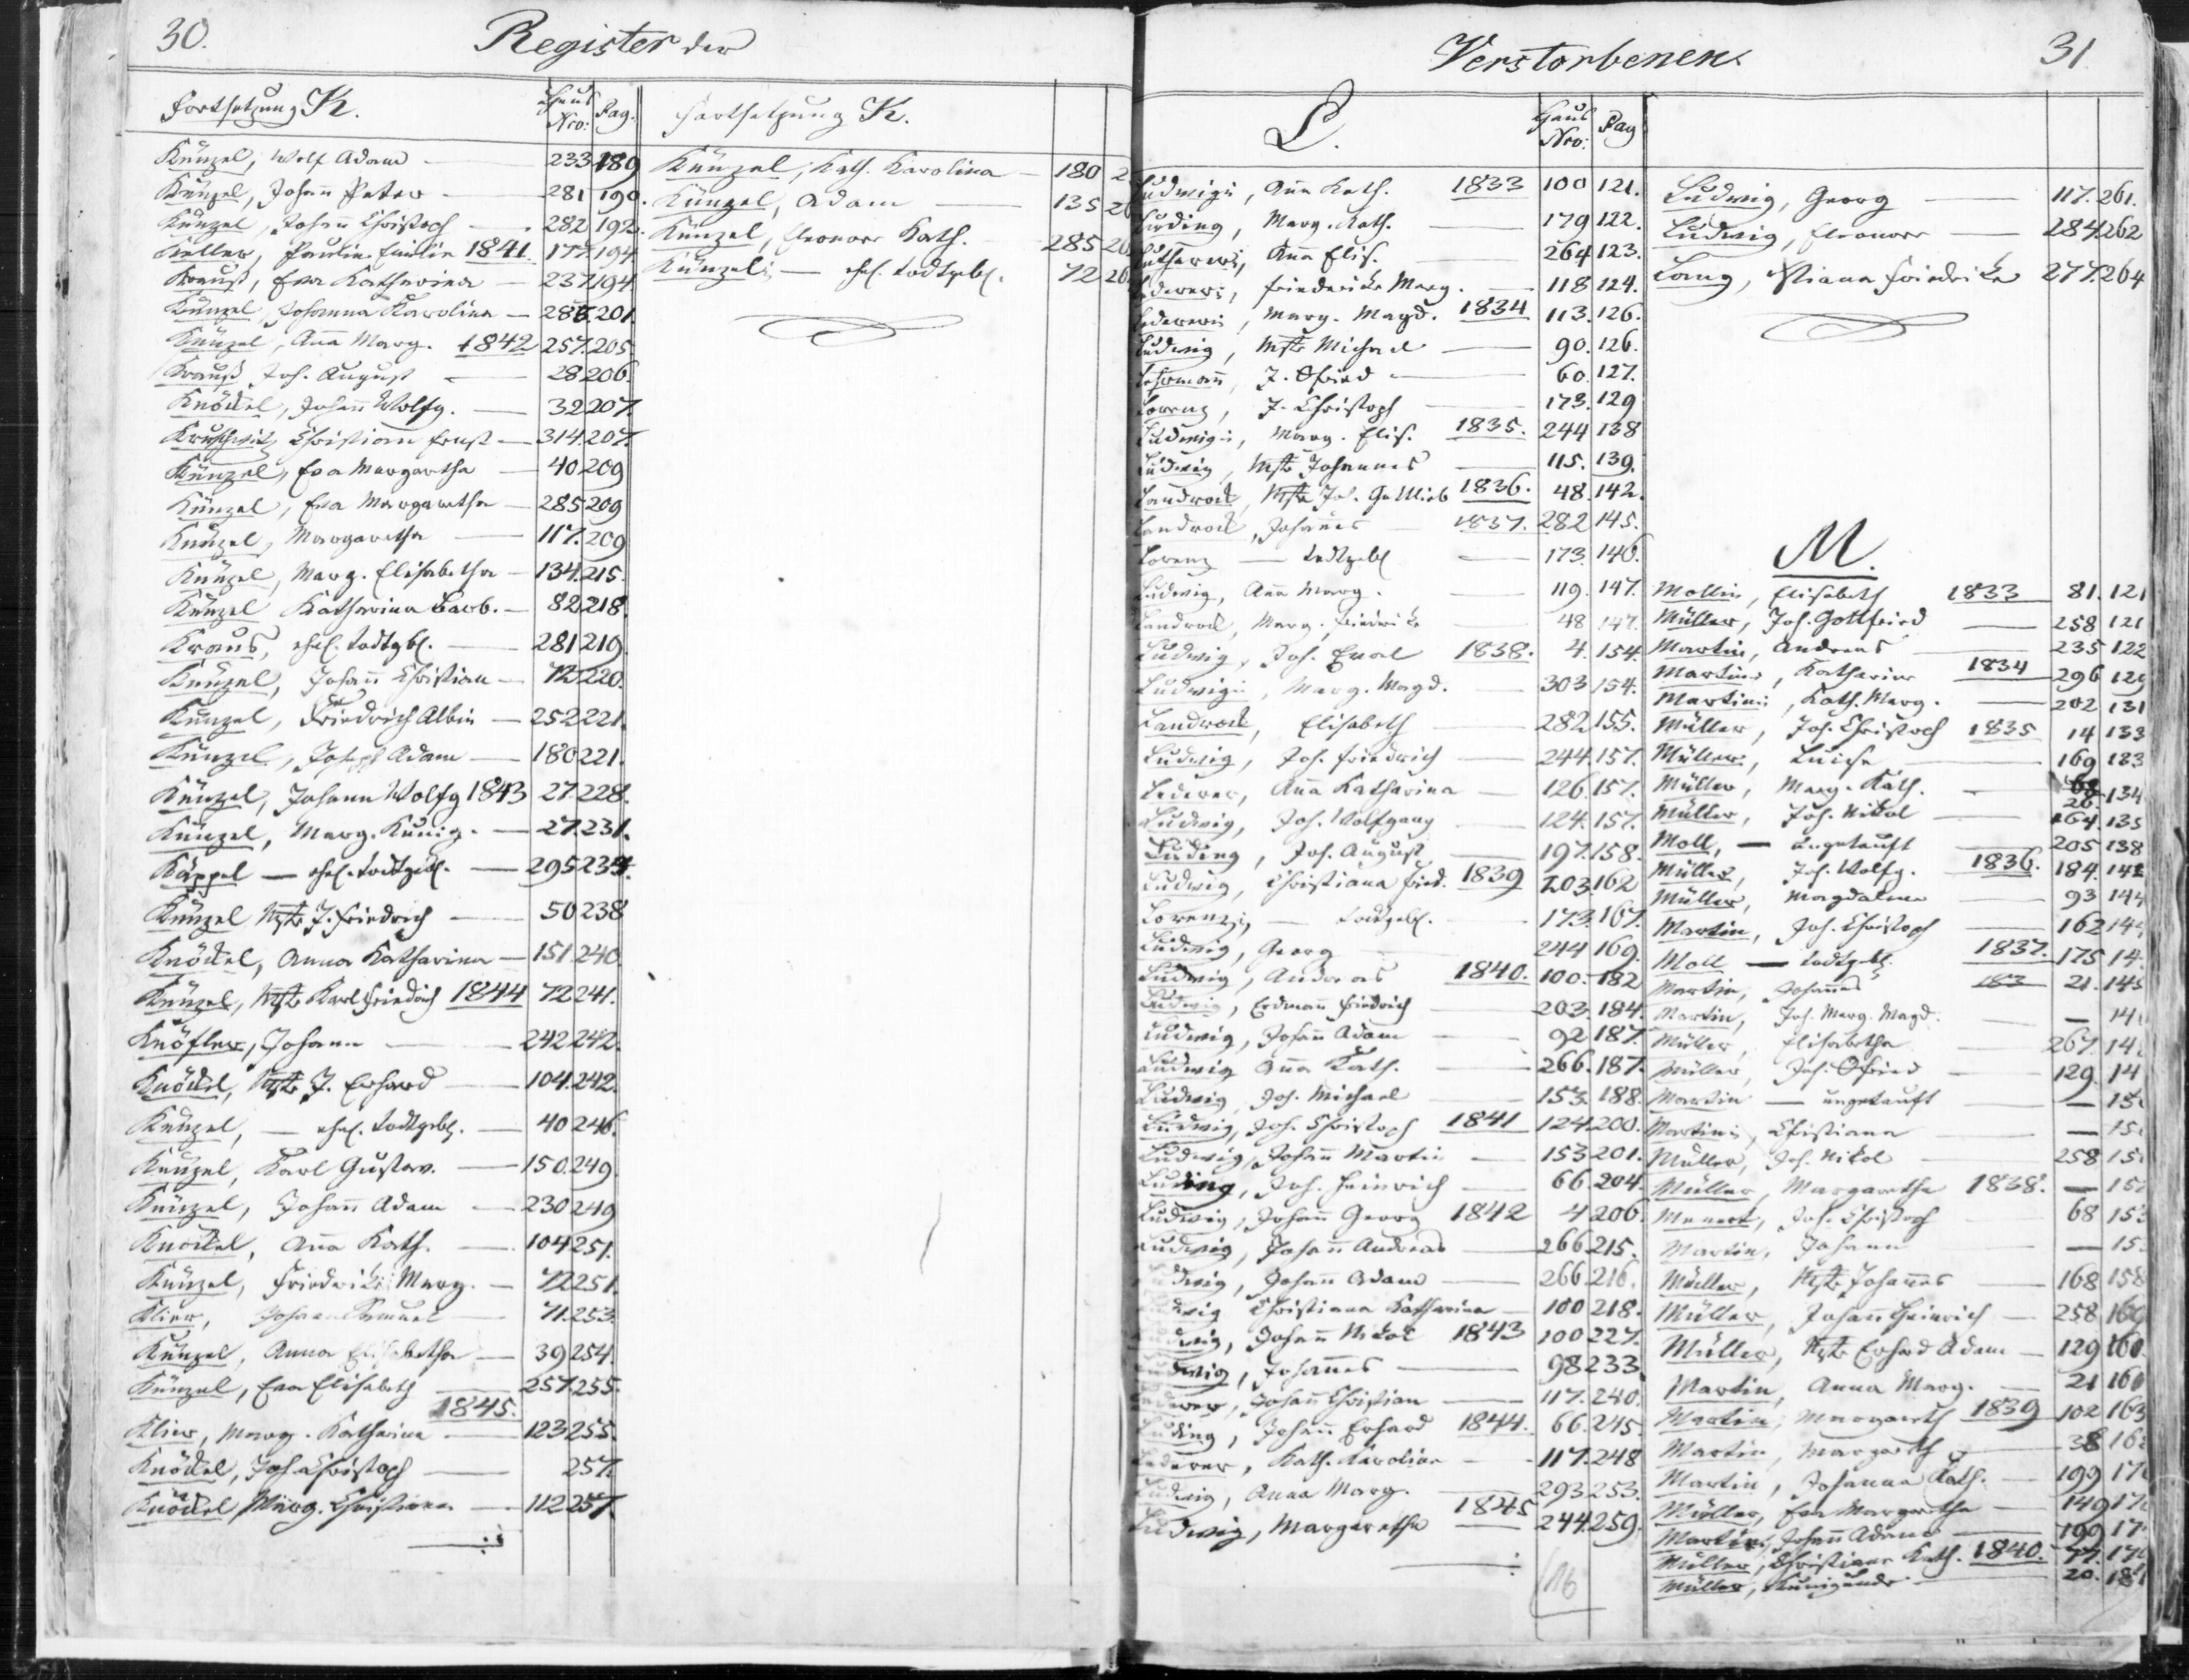 30.
Register der
Fortsetzung K.
Haus Nro:
Pag.
Künzel, Wolf Adam — 233 189
Künzel, Johann Peter — 281 190.
Künzel, Johann Christoph — 282 192.
Keller, Paulin Emilie 1841. 177. 194
Krauß, Eva Katharina — 237. 194
Künzel, Johanna Karolina — 285. 201.
Künzel, Aña Marg. 1842 257. 205.
Krauß Joh. August — 28 206.
Knöckel, Johañ Wolfg. — 32 207.
Christian Ernst — 314. 207.
Künzel, Eva Margaretha — 40 209
Künzel, Eva Margaretha — 285 209
Künzel, Margaretha — 117. 209
Künzel, Marg. Elisabetha — 134. 215.
Künzel Katharina Barb. — 82 218.
Kraus, ehel. todtgeb. — 281 219.
Künzel, Johañ Christian — 72 220.
Künzel, Friedrich Albin — 252 221.
Künzel, Joseph Adam — 180 221.
Künzel, Johann Wolfg 1843 27. 228.
Künzel, Marg. Kunig. — 27. 231.
Käppel — ehel. todtgeb. — 295 234.
Künzel Mstr J. Friedrich — 50 238
Knöckel, Anna Katharina — 151. 240.
Künzel, Mstr Karl Friedrich 1844 72 241.
Knöfler, Johann — 242 242.
Knöckel, Mstr J. Erhard — 104. 242.
Künzel, — ehel. todtgeb. — 40 246.
Künzel, Karl Gustav. — 150. 249.
Künzel, Johañ Adam — 230 249
Knöckel, Aña Kath. — 104 251.
Künzel, Friedrike Marg. — 72 251.
Klier, Johann Samuel — 71. 253.
Künzel, Anna Elisabetha — 39 254.
Künzel, Eva Elisabeth — 257. 255.
1845.
Klier, Marg. Katharina — 123 255.
Knöckel, Joh. Christoph — 257.
Knöckel Marg. Christiana — 112 257.
Fortsetzung K.
Künzel, Kath. Karolina — 180
Künzel, Adam — 135
Künzel, Eleonore Kath. — 285
Künzel, — ehel. todtgeb. 72
Verstorbenen
31
L.
Haus Nro:
Pag
Ludwigin, Aña Kath. 1833 100 121.
Luding, Marg. Kath. — 179 122.
Aña Elis. — 264 123.
Friederike Marg. — 118 124.
Marg. Magd. 1834 113. 126.
Ludwig, Mstr Michael — 90. 126.
Lehrmañ, J. Gfried — 60. 127.
Lorenz, J. Christoph — 173. 129
Ludwigin, Marg. Elis. 1835. 244 138
Ludwig, Mstr Johannes — 115. 139.
Landrock, Mstr Joh. Gottlieb 1836. 48. 142.
Landrock, Johañes — 1837. 282 145.
Lorenz — todtgeb — 173. 146.
Ludwig, Aña Marg. — 119. 147.
Landrock, Marg. Friedrike — 48 147.
Ludwig, Joh. 1838. 4. 154.
Ludwigin, Marg. Magd. — 303 154.
Landrock, Elisabeth — 282 155.
Ludwig, Joh. Friedrich — 244. 157.
Lederer, Aña Katharina — 126. 157.
Ludwig, Joh. Wolfgang — 124. 157.
Luding, Joh. August — 197. 158.
Ludwig, Christiana Fried. 1839 203. 162
Lorenz, — todtgeb. — 173. 167.
Ludwig, Georg — 244 169.
Ludwig, Andreas 1840. 100. 182
Ludwig, Erdmañ Friedrich — 203. 184.
Ludwig, Johañ Adam — 92 187.
Ludwig Aña Kath. — 266. 187.
Ludwig, Joh. Michael — 153. 188.
Ludwig, Joh. Christoph 1841 124. 200.
Ludwig, Johañ Martin — 153 201.
Luding, Joh. Heinrich — 66. 204.
Ludwig, Johañ Georg 1842 4 206.
Ludwig, Johañ Andreas — 266 215.
Ludwig, Johañ Adam — 266. 216.
Ludwig Christiana Katharina — 100 218.
Ludwig, Johañ Nikol 1843 100 227.
Ludwig, Johannes — 98 233.
Lederer, Johañ Christian — 117. 240.
Luding, Johañ Erhard 1844. 66. 245.
Lederer, Kath. Karolina — 117. 248
Ludwig, Anna Marg. — 293. 253.
1845
Ludwig, Margaretha — 244. 259.
16
Ludwig, Georg — 117. 261.
Ludwig, Eleonore — 284. 262
Lang, Friedrike 277. 264
M.
Mollin, Elisabeth 1833 81. 121
Müller, Joh. Gottfried — 258 121
Martin, Andreas — 235 122
Martin, Katharina 1834 296 129
Martini, Kath. Marg. — 202 131
Müller, Joh. Christoph 1835 14 133
Müller, Luise — 169 133
Müller, Marg. Kath. — 134
Müller, Joh. Nikol — 164. 135
Moll, — ungetauft — 205 138
Müller, Joh. Wolfg. 1836. 184.
Müller, Magdalena — 93 144
Martin, Joh. Christoph — 162
Moll — todtgeb. 1837. 175
Martin, Johañes 21. 145
Martin, Joh. Marg. Magd. —
Müller, Elisabetha — 267.
Müller, Joh. Gfried — 129.
Martin — ungetauft —
Martini, Christiana —
Müller, Joh. Nikol — 258
Müller, Margaretha 1838. —
Joh. Christoph — 68
Martin, Johann —
Müller, Mstr Johañes — 168 158
Müller, Johañ Heinrich — 258
Müller, Mstr Erhard Adam — 129 160.
Martin, Anna Marg. — 21 160
Martin, Margareth 1839 102 163
Martin, Margareth — 38
Martin, Johanna Kath. — 199
Müller, Eva Margaretha — 149
Martin, Johañ Adam — 199
Müller, Christiana Kath. 1840. 77.
Müller, Kunigunde — 20. 181